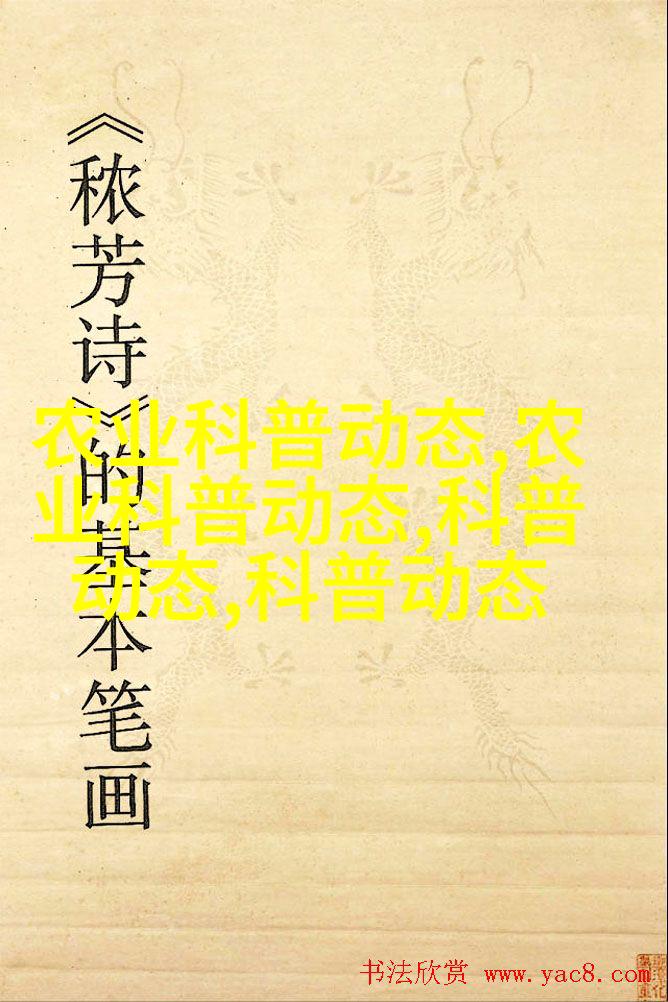 《秾芳诗》的基本笔画
农业科普动态,农
业科普动态,科普
动态,科普动态
书法欣赏 www.yac8.com